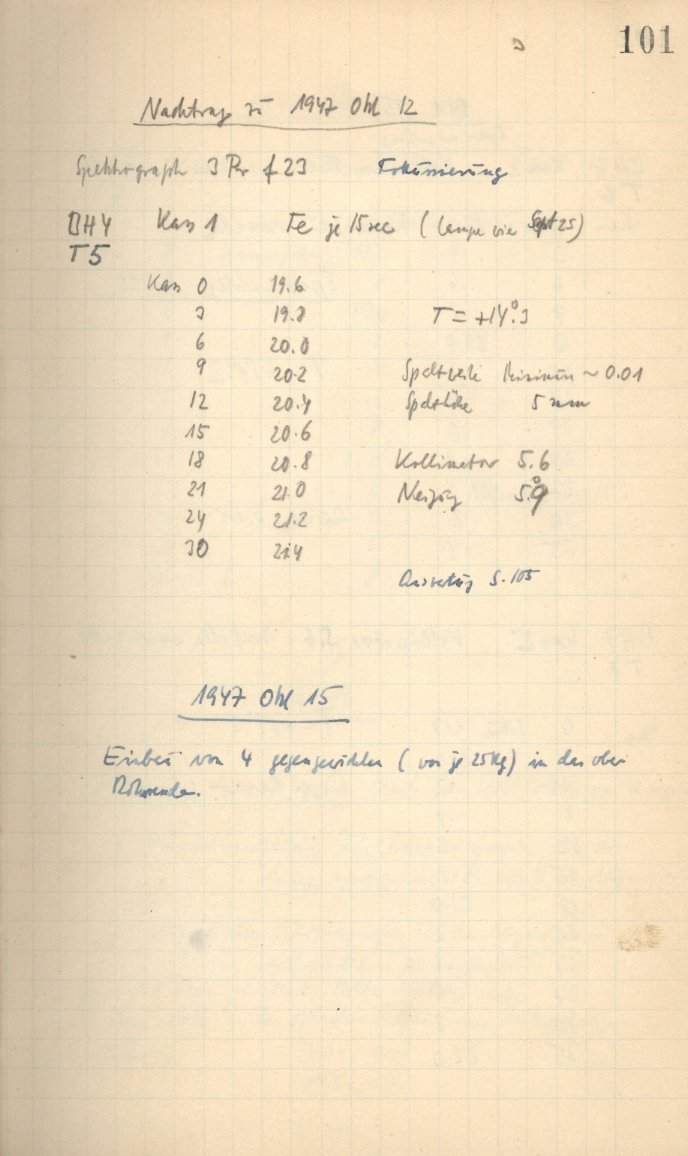 101
Nachtrag zu 1947 Okt 12
Spektrograph 3 Pr f 23 Fokussierung
BH4 Kass 1 Fe je 15 sec (Lampe wie Sept 25)
T5
Kass 0 19.6
3 19.8 T = +14°.3
6 20.0
9 20.2 Spaltweite Minimum ~ 0.01
12 20.4 Spalthöhe 5 mm
15 20.6
18 20.8 Kollimator 5.6
21 21.0 Neigung 5.°9
24 21.2
30 21.4
Auswertung S. 105
1947 Okt 15
Einbau von 4 Gegengewichten (von je 25 kg) in das obere
Rohrende.